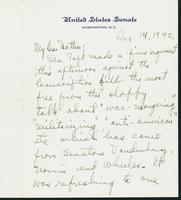 United States Senate
WASHINGTON, D.C.
Aug. 14, 1940.
My dear Mother:
Sen. Taft made a fine argument
this afternoon against the
conscription bill the most
free from the sloppy
talk about "war-mongering"
"militarizing" "anti-american"
etc which has come
from senators Vandenberg,
Norris and Wheeler. It
was refreshing to me